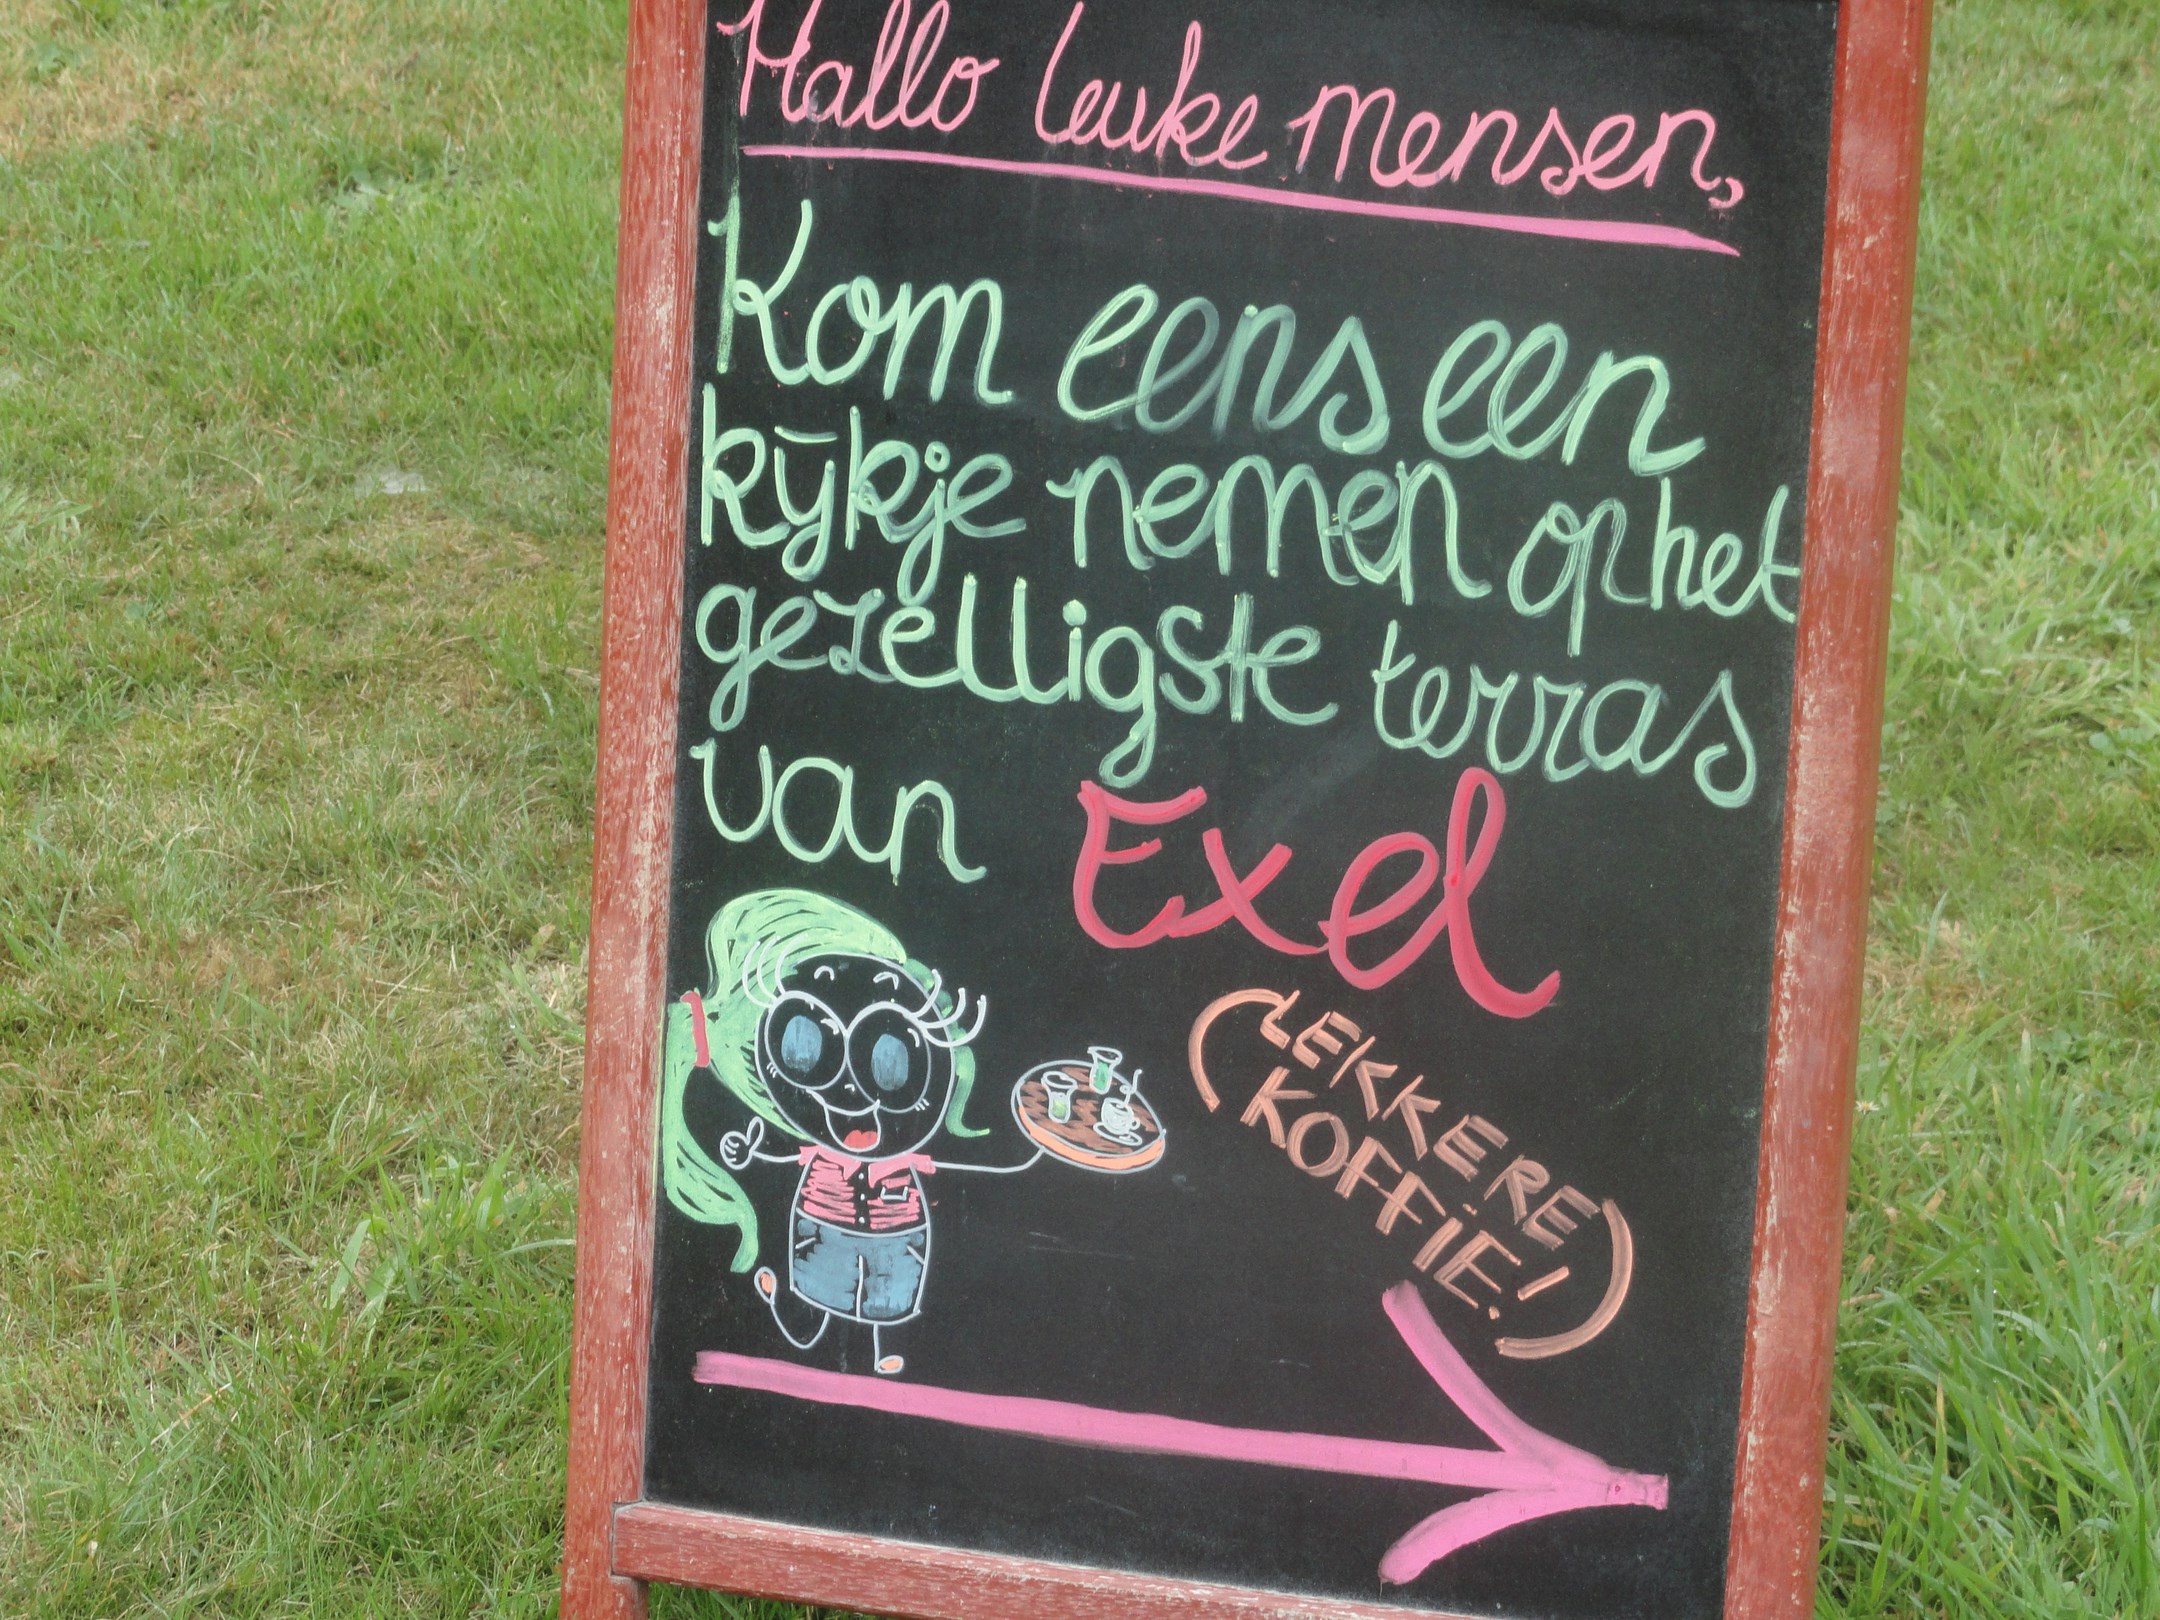 Hallo leuke mensen,
Kom eens een
kijkje nemen op het
gezelligste terras
van Exel
(LEKKERE
KOFFIE!)